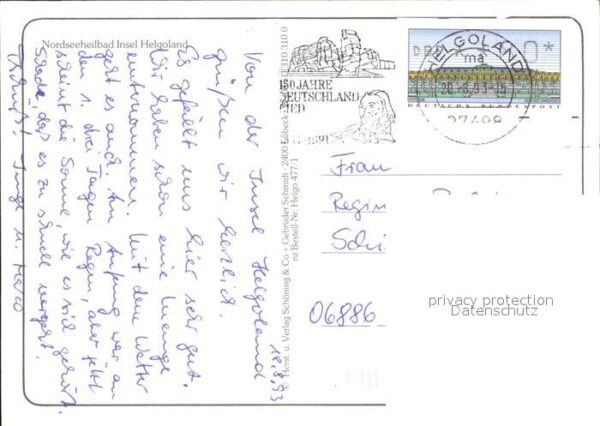 Nordseeheilbad Insel Helgoland
18.8.93
Von der Insel Helgoland
grüßen wir herzlich.
Es gefällt uns hier sehr gut.
Wir haben schon eine Menge
unternommen. Mit dem Wetter
geht es auch. Am Anfang war an
den 1. drei Tagen Regen, aber jetzt
scheint die Sonne, wie es sich gehört.
Schade, daß es so schnell vergeht.
Tschüß! Inge u. Marco
© Herst. u. Verlag Schöning & Co + Gebrüder Schmidt · 2400 Lübeck
310 3100
nz Bestell-Nr. Helgo 477/1
150 JAHRE
DEUTSCHLAND
LIED
1991
HELGOLAND
ma
27498
DEUTSCHE BUNDESPOST
Frau
Regin
Schi
06886
privacy protection
Datenschutz